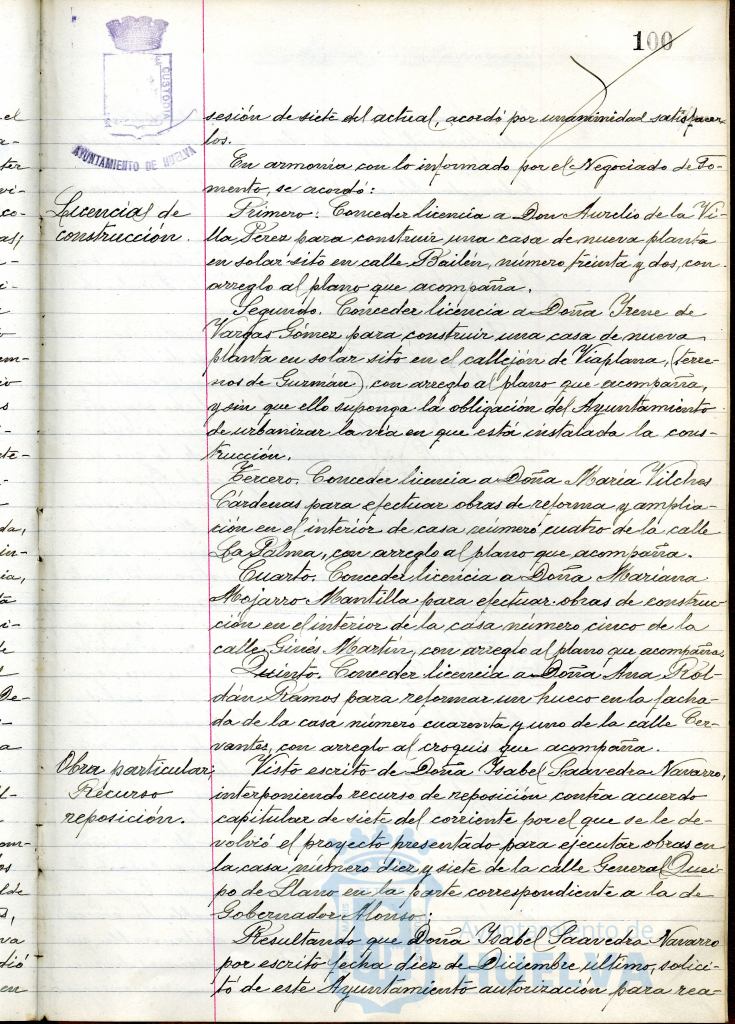 100
CUSTODIA
AYUNTAMIENTO DE HUELVA
sesión de siete del actual, acordó por unanimidad satisfacer-
los.
En armonía con lo informado por el Negociado de Fo-
mento, se acordó:
Licencias de
construcción.
Primero. Conceder licencia a Don Aurelio de la Vi-
lla Perez para construir una casa de nueva planta
en solar sito en calle Bailén, número treinta y dos, con
arreglo al plano que acompaña.
Segundo. Conceder licencia a Doña Irene de
Vargas Gómez para construir una casa de nueva
planta en solar sito en el callejón de Viaplana, (terre-
nos de Guzmán), con arreglo al plano que acompaña,
y sin que ello suponga la obligación del Ayuntamiento
de urbanizar la vía en que está instalada la cons-
trucción.
Tercero. Conceder licencia a Doña María Vilches
Cárdenas para efectuar obras de reforma y amplia-
ción en el interior de casa número cuatro de la calle
La Palma, con arreglo al plano que acompaña.
Cuarto. Conceder licencia a Doña Mariana
Mojarro Mantilla para efectuar obras de construc-
ción en el interior de la casa número cinco de la
calle Ginés Martín, con arreglo al plano que acompaña.
Quinto. Conceder licencia a Doña Ana Rol-
dán Ramos para reformar un hueco en la facha-
da de la casa número cuarenta y uno de la calle Cer-
vantes, con arreglo al croquis que acompaña.
Obra particular;
Recurso
reposición.
Visto escrito de Doña Isabel Saavedra Navarro,
interponiendo recurso de reposición contra acuerdo
capitular de siete del corriente por el que se le de-
volvió el proyecto presentado para ejecutar obras en
la casa número diez y siete de la calle General Quei-
po de Llano en la parte correspondiente a la de
Gobernador Alonso;
Resultando que Doña Isabel Saavedra Navarro
por escrito fecha diez de Diciembre último, solici-
tó de este Ayuntamiento autorización para rea-
Ayuntamiento de
HUELVA